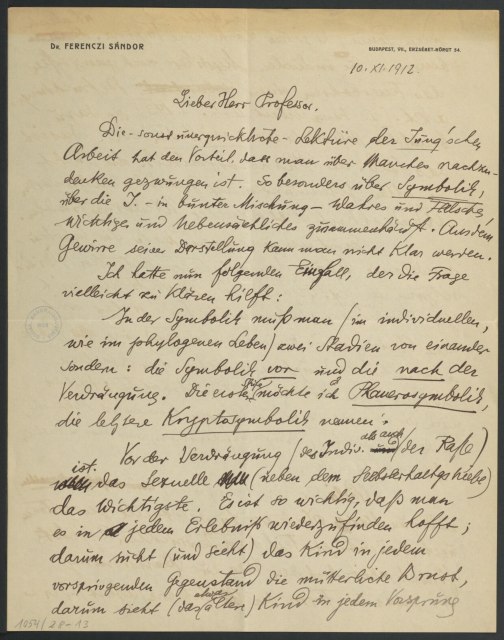 Dr. FERENCZI SÁNDOR
BUDAPEST, VII., ERZSÉBET-KÖRUT 54.
10. XI. 1912.
Lieber Herr Professor.
Die – sonst unerquickliche – Lektüre der Jung'schen
Arbeit hat den Vorteil, dass man über Manches nachzu-
denken gezwungen ist. So besonders über Symbolik,
über die J. – in bunter Mischung – Wahres und Falsches,
Wichtiges und Nebensächliches zusammenhängt. Aus dem
Gewirre seiner Darstellung kann man nicht klar werden.
Ich hatte nun folgenden Einfall, der die Frage
vielleicht zu klären hilft:
In der Symbolik muß man (im individuellen,
wie im phylogenen Leben) zwei Stadien von einander
sondern: die Symbolik vor und die nach der
Verdrängung. Die erste möchte ich als Phanerosymbolik,
die letztere Kryptosymbolik nennen.
Vor der Verdrängung (des Indiv. als auch der Raße)
ist das Sexuelle (neben dem Selbsterhaltgs triebe)
das Wichtigste. Es ist so wichtig, daß man
es in jedem Erlebniß wiederzufinden hofft;
darum sucht (und sieht) das Kind in jedem
vorspringenden Gegenstand die mütterliche Brust,
darum sieht (das etwas ältere) Kind in jedem Vorsprung
1054/28-13